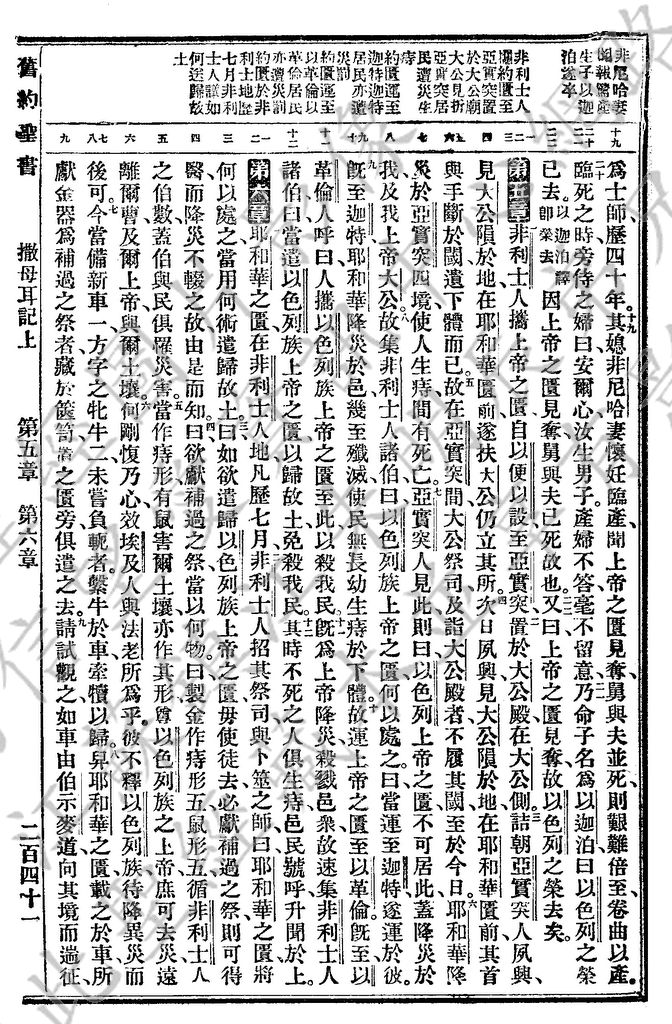 非尼哈妻
聞報驚產
生子以迦
非利士人
攜約匱至
亞實突置
於大公廟
大公見折
亞實突居
民遭災生
痔
約匱運至
迦特迦特
居民亦遭
災罰
約匱運至
以革倫以
革倫居民
亦遭災罰
約匱於非
利士地歷
七月非利
士人議如
何送歸故
土
十九
二十
二一
二二
一
二三
四
五
六
七
八
九
十
十一
十二
一二
三
四
五
六
七八
九
爲士師歷四十年。十九其媳非尼哈妻懷妊臨產聞上帝之匱見奪舅與夫並死則艱難倍至卷曲以產。
二十臨死之時旁侍之婦曰安爾心汝生男子產婦不答毫不留意二一乃命子名爲以迦泊曰以色列之榮
已去以迦泊譯卽榮去因上帝之匱見奪舅與夫已死故也二二又曰上帝之匱見奪故以色列之榮去矣。
第五章 非利士人攜上帝之匱自以便以設至亞實突二置於大公殿在大公側三詰朝亞實突人夙興
見大公隕於地在耶和華匱前遂扶大公仍立其所四次日夙興見大公隕於地在耶和華匱前其首
與手斷於閾遺下體而已五故在亞實突間大公祭司及詣大公殿者不履其閾至於今日六耶和華降
災於亞實突四境使人生痔間有死亡七亞實突人見此則曰以色列上帝之匱不可居此蓋降災於
我及我上帝大公八故集非利士人諸伯曰以色列族上帝之匱何以處之曰當運至迦特遂運於彼
九旣至迦特耶和華降災於邑幾至殲滅使民無長幼生痔於下體十故運上帝之匱至以革倫旣至以
革倫人呼曰人攜以色列族上帝之匱至此以殺我民十一旣爲上帝降災殺戮邑衆故速集非利士人
諸伯曰當遣以色列族上帝之匱以歸故土免殺我民十二其時不死之人俱生痔邑民號呼升聞於上
第六章 耶和華之匱在非利士人地凡歷七月二非利士人招其祭司與卜筮之師曰耶和華之匱將
何以處之當用何術遣歸故土三曰如欲遣歸以色列族上帝之匱毋使徒去必獻補過之祭則可得
醫而降災不輟之故由是而知四曰欲獻補過之祭當以何物曰製金作痔形五鼠形五循非利士人
之伯數蓋伯與民俱罹災害五當作痔形有鼠害爾土壤亦作其形尊以色列族之上帝庶可去災遠
離爾曹及爾上帝與爾土壤六何剛愎乃心效埃及人與法老所爲乎彼不釋以色列族待降異災而
後可七今當備新車一方字之牝牛二未嘗負軛者繫牛於車牽犢以歸八舁耶和華之匱載之於車所
獻金器爲補過之祭者藏於篋笥置之匱旁俱遣之去九請試觀之如車由伯示麥道向其境而遄征
舊約聖書 撒母耳記上 第五章 第六章 二百四十一